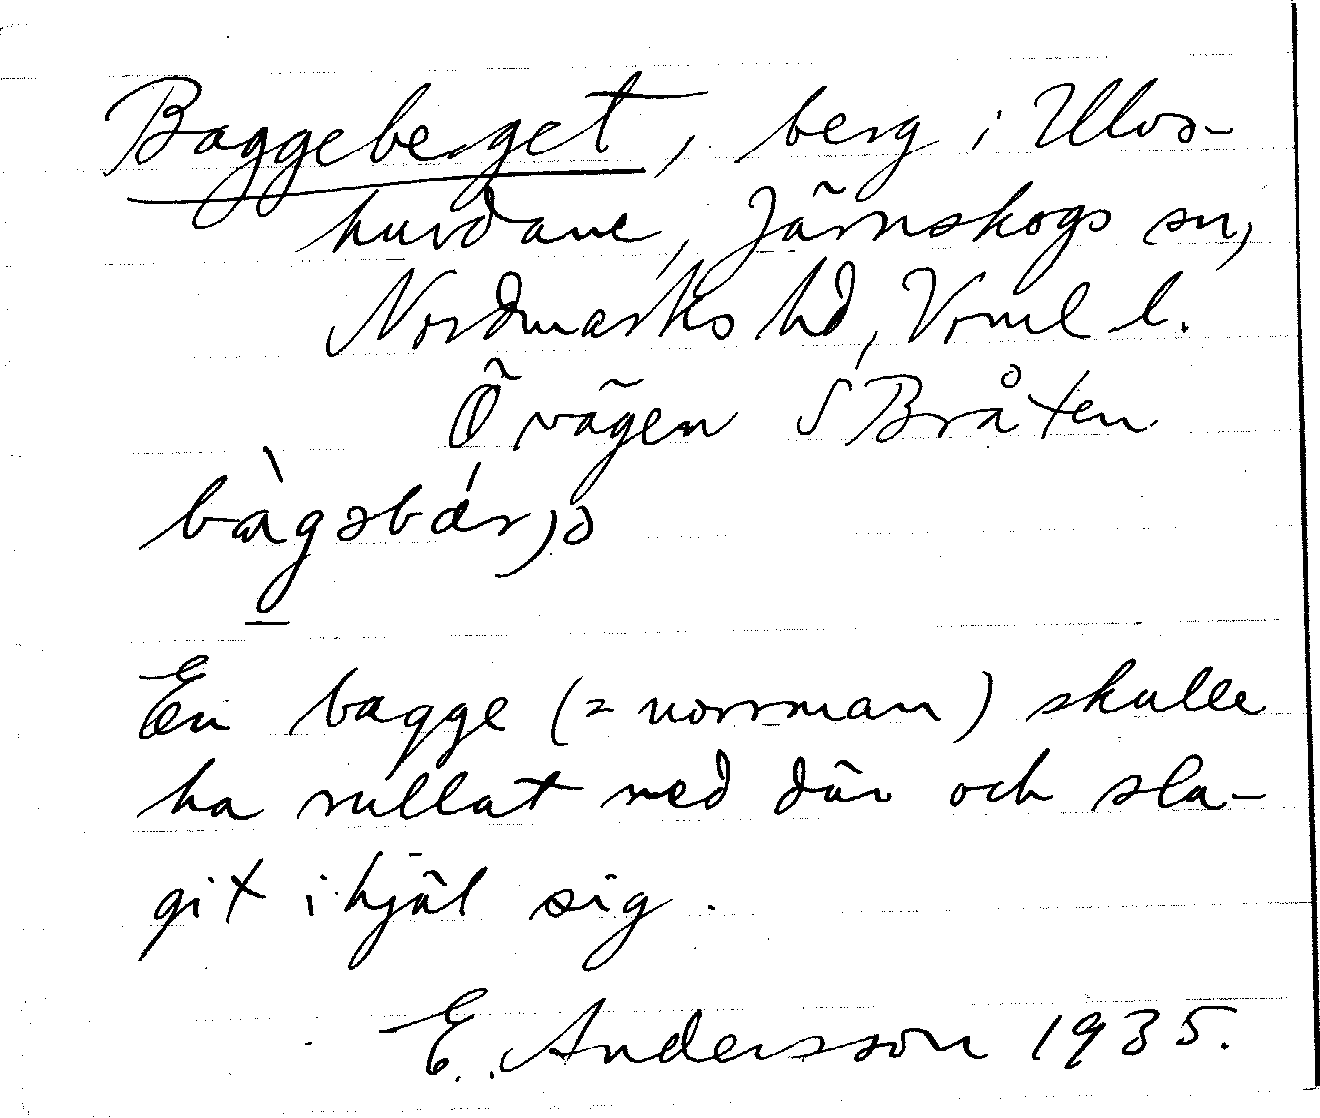 Baggeberget, berg i Ulvs-
hurdane, Järnskogs sn,
Nordmarks hd, Vrml l.
Ö vägen S Bråten
bàgəbǽrjə
En bagge (= norrman) skulle
ha rullat ned där och sla-
git ihjäl sig.
E. Andersson 1935.